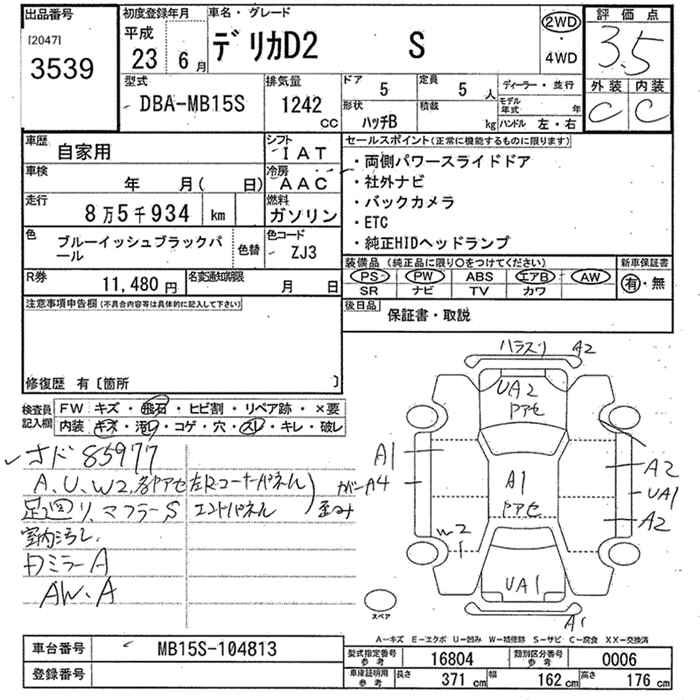 出品番号
[2047]
3539
初度登録年月
平成
23 6月
車名・グレード
デリカD2 S
2WD
・
4WD
評価点
3.5
外装 内装
C C
型式
DBA-MB15S
排気量
1242 CC
ドア 5
定員 5 人
形状 ハッチB
積載 kg
ディーラー・並行
モデル年式 年
ハンドル 左・右
車歴
自家用
シフト
IAT
車検
年 月( 日)
冷房
AAC
走行
8万5千934 km
燃料
ガソリン
色
ブルーイッシュブラックパール
色替
色コード
ZJ3
R券
11,480円
名変通知期限
月 日
セールスポイント(正常に機能するものに限ります)
・両側パワースライドドア
・社外ナビ
・バックカメラ
・ETC
・純正HIDヘッドランプ
装備品(純正品に限り○をつけてください)
PS PW ABS エアB AW
SR ナビ TV カワ
新車保証書
有・無
後日品
保証書・取説
注意事項申告欄(不具合内容等は具体的に記入して下さい)
修復歴 有〔箇所 〕
検査員記入欄
FW キズ・飛石・ヒビ割・リペア跡・×要
内装 キズ・汚レ・コゲ・穴・スレ・キレ・破レ
85977
A、U、W2、
左Rコーナーパネル
エンドパネル
マフラーS
室内汚レ
ドミラーA
AW、A
A2
UA2
アセ
A1
A1
アセ
A4
A2
UA1
A2
W2
UA1
A1
スペア
A-キズ E-エクボ U-凹み W-補修跡 S-サビ C-腐食 XX-交換済
車台番号
MB15S-104813
登録番号
型式指定番号参考
16804
類別区分番号参考
0006
車庫証明用参考
長さ 371 cm
幅 162 cm
高さ 176 cm